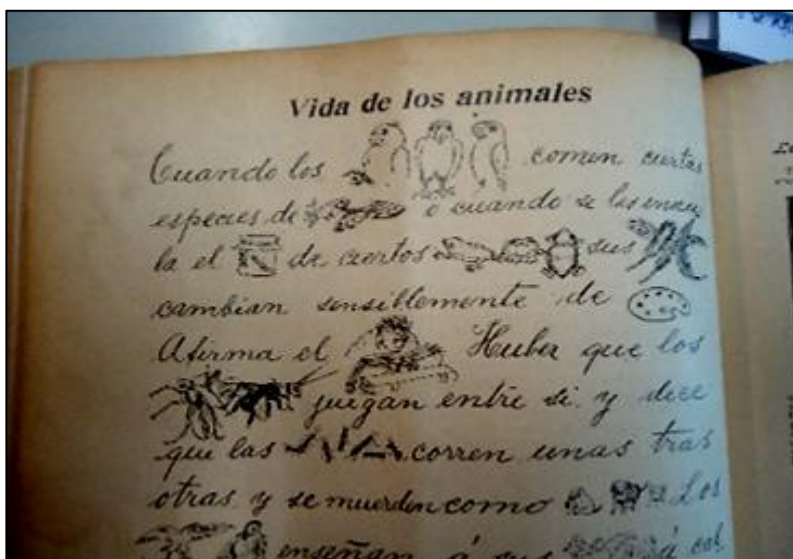 Vida de los animales
Cuando los comen ciertas
especies de o cuando se les
la el de ciertos sus
cambian sensiblemente de
Afirma el Huber que los
juegan entre si y dice
que las corren unas tras
otras y se muerden como Los
enseñan á sus á